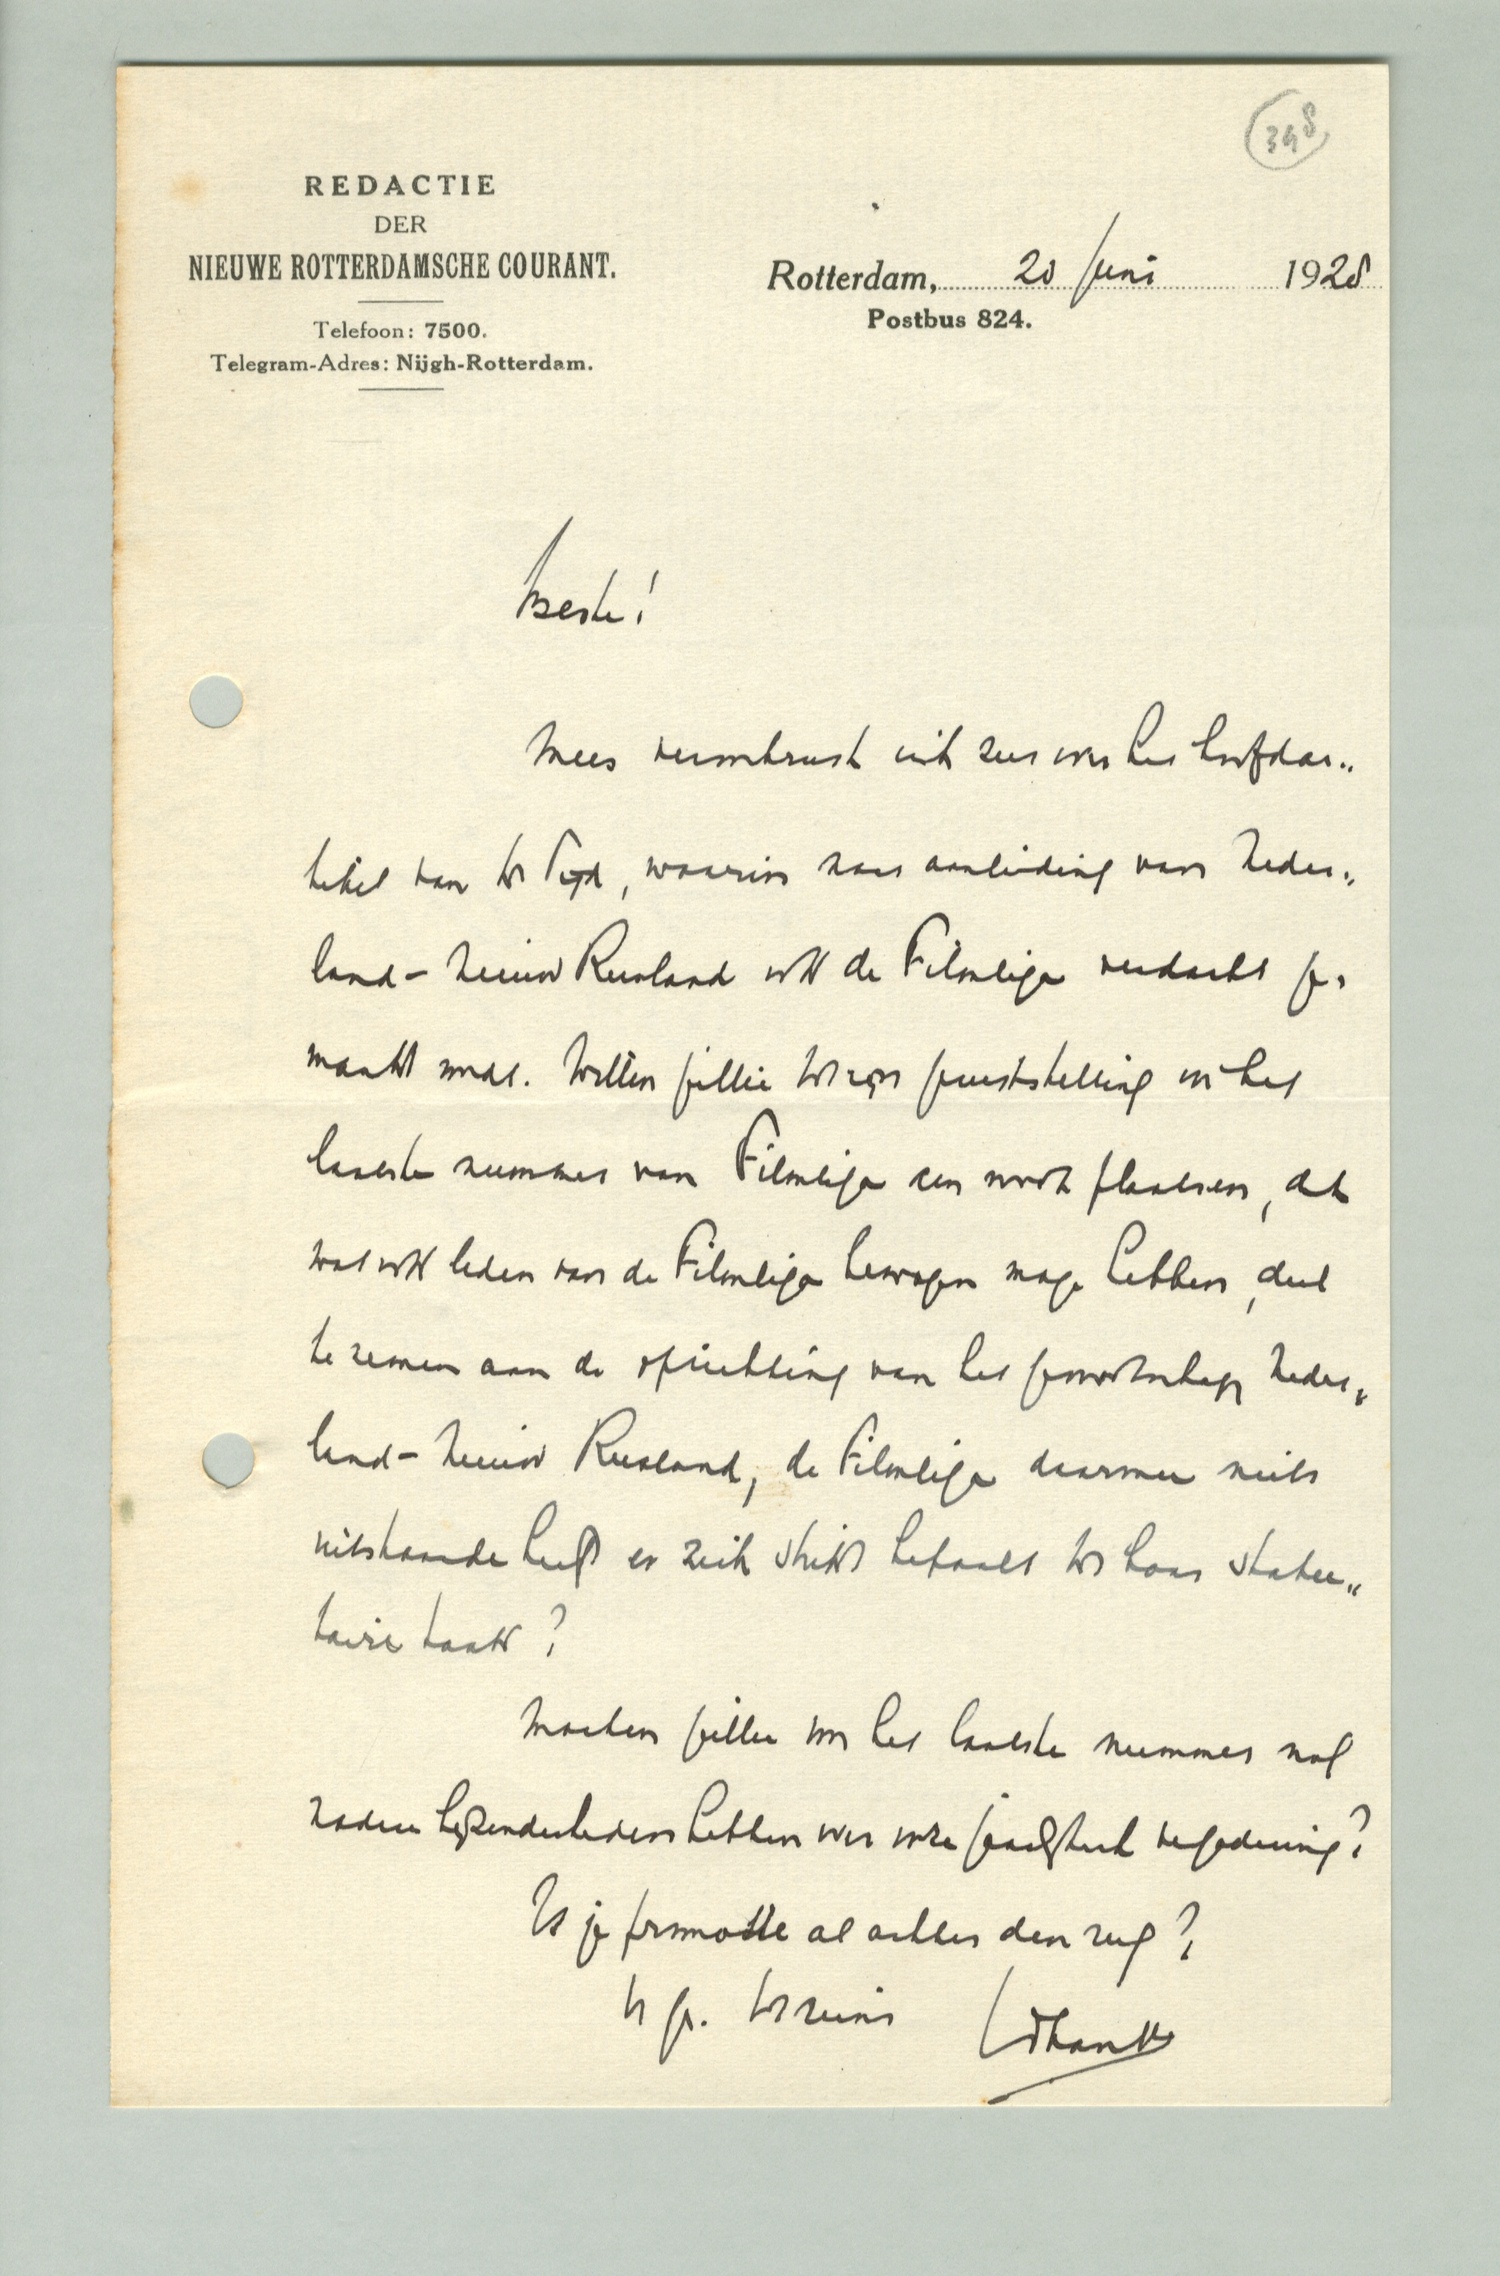 398
REDACTIE
DER
NIEUWE ROTTERDAMSCHE COURANT.
Telefoon: 7500.
Telegram-Adres: Nijgh-Rotterdam.
Rotterdam, 20 Juni 1928
Postbus 824.
Beste!
Mees verontrust zich zeer over het hoofdar„
tikel van de Tijd, waarin naar aanleiding van Neder„
land - Nieuw Rusland ook de Filmliga verdacht ge„
maakt wordt. Willen jullie tot zijn geruststelling in het
laatste nummer van Filmliga een noot plaatsen, dat
wat ook leden van de Filmliga bewogen moge hebben, deel
te nemen aan de oprichting van het genootschap Neder„
land - Nieuw Rusland, de Filmliga daarmee niets
uitstaande heeft en zich strikt bepaalt tot haar statu„
taire taak?
Moeten jullie voor het laatste nummer nog
nadere bijzonderheden hebben over onze jaarlijksche vergadering?
Is je promotie al achter den rug?
t. g. Tot ziens